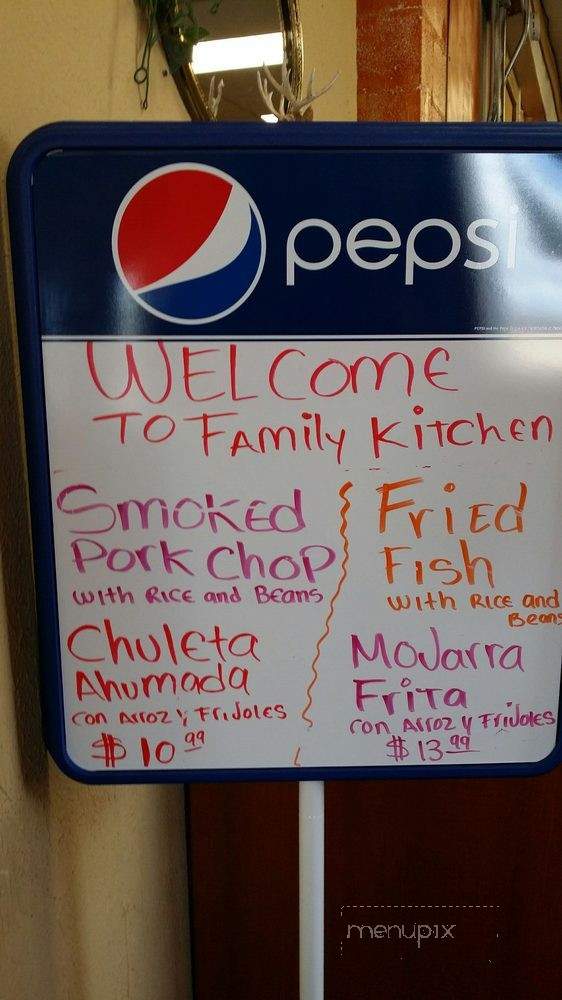 pepsi
WELCOME
TO FAmily KitcHEN
SmOKEd
PORK CHOP
WITH RICE and BEANS
CHulETa
AHumada
CON ARROZ Y FRIJOLES
$10.99
FriEd
FisH
WITH RICE and
BEANS
MOJarra
FRiTa
CON ARROZ Y FRIJOLES
$13.99
menupix